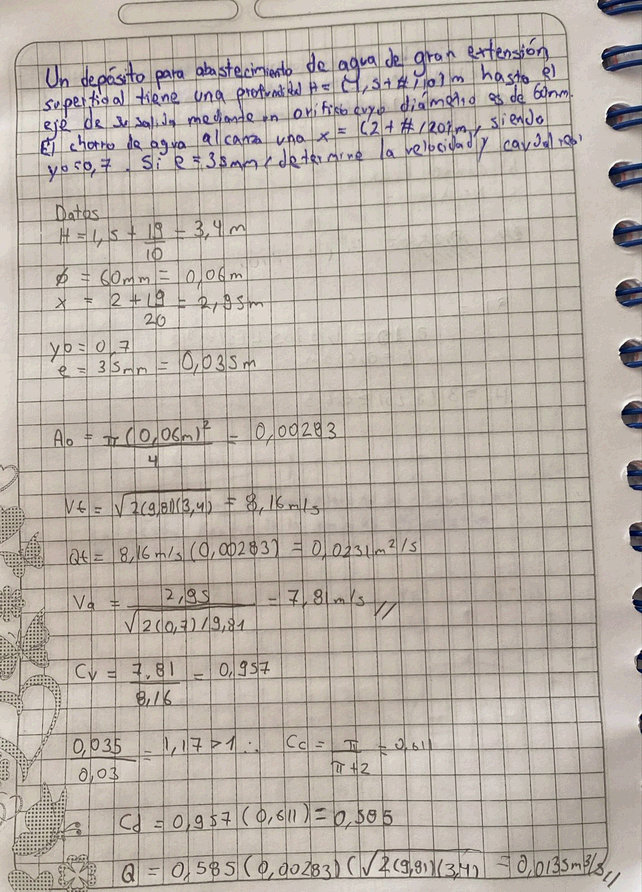 Un depósito para abastecimiento de agua de gran extensión
superficial tiene una profundidad H = (1,5 + #/10) m hasta el
eje de su salida mediante un orificio cuyo diámetro es de 60mm.
El chorro de agua alcanza una x = (2 + #/20) m, siendo
yo = 0,7. Si e = 35mm, determine la velocidad y caudal real
Datos
H = 1,5 + 19/10 = 3,4 m
ϕ = 60mm = 0,06m
x = 2 + 19/20 = 2,95m
yo = 0,7
e = 35mm = 0,035m
Ao = π(0,06m)²/4 = 0,00283
Vt = √2(9,81)(3,4) = 8,16 m/s
Qt = 8,16 m/s (0,00283) = 0,0231 m²/s
Va = 2,95/√2(0,7)/9,81 = 7,81 m/s //
Cv = 7,81/8,16 = 0,957
0,035/0,03 = 1,17 > 1 ∴ Cc = π/π+2 = 0,611
Cd = 0,957 (0,611) = 0,585
Q = 0,585 (0,00283) (√2(9,81)(3,4) = 0,0135m³/s //